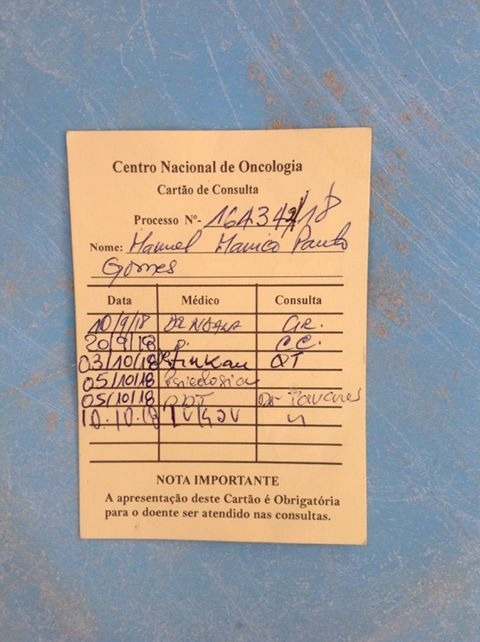 Centro Nacional de Oncologia
Cartão de Consulta
Processo Nº- 16434 /18
Nome: Manuel Paulo
Gomes
Data Médico Consulta
10/9/18 DR
20/9/18 C.C.
03/10/18 QT
05/10/18 Psicologica
05/10/18 Dr Tavares
10.10.18
NOTA IMPORTANTE
A apresentação deste Cartão é Obrigatória
para o doente ser atendido nas consultas.